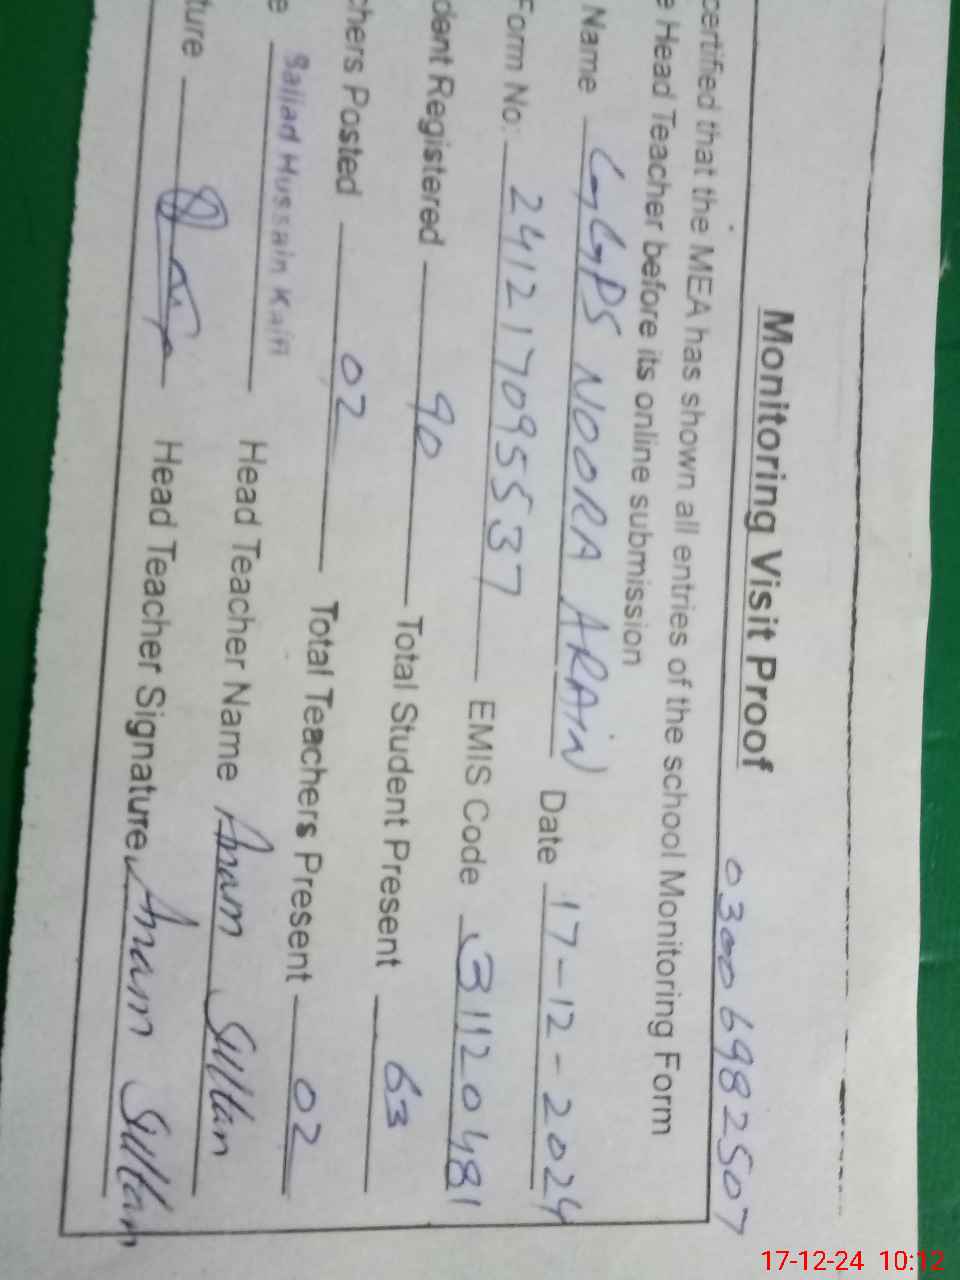 Monitoring Visit Proof 03006982507
certified that the MEA has shown all entries of the school Monitoring Form
e Head Teacher before its online submission
Name GGPS NOORA ARAIN Date 17-12-2024
Form No: 241217095537 EMIS Code 31120481
dent Registered 90 Total Student Present 63
chers Posted 02 Total Teachers Present 02
e Sajjad Hussain Kaifi Head Teacher Name Anam Sultan
ture Head Teacher Signature Anam Sultan
17-12-24 10:12